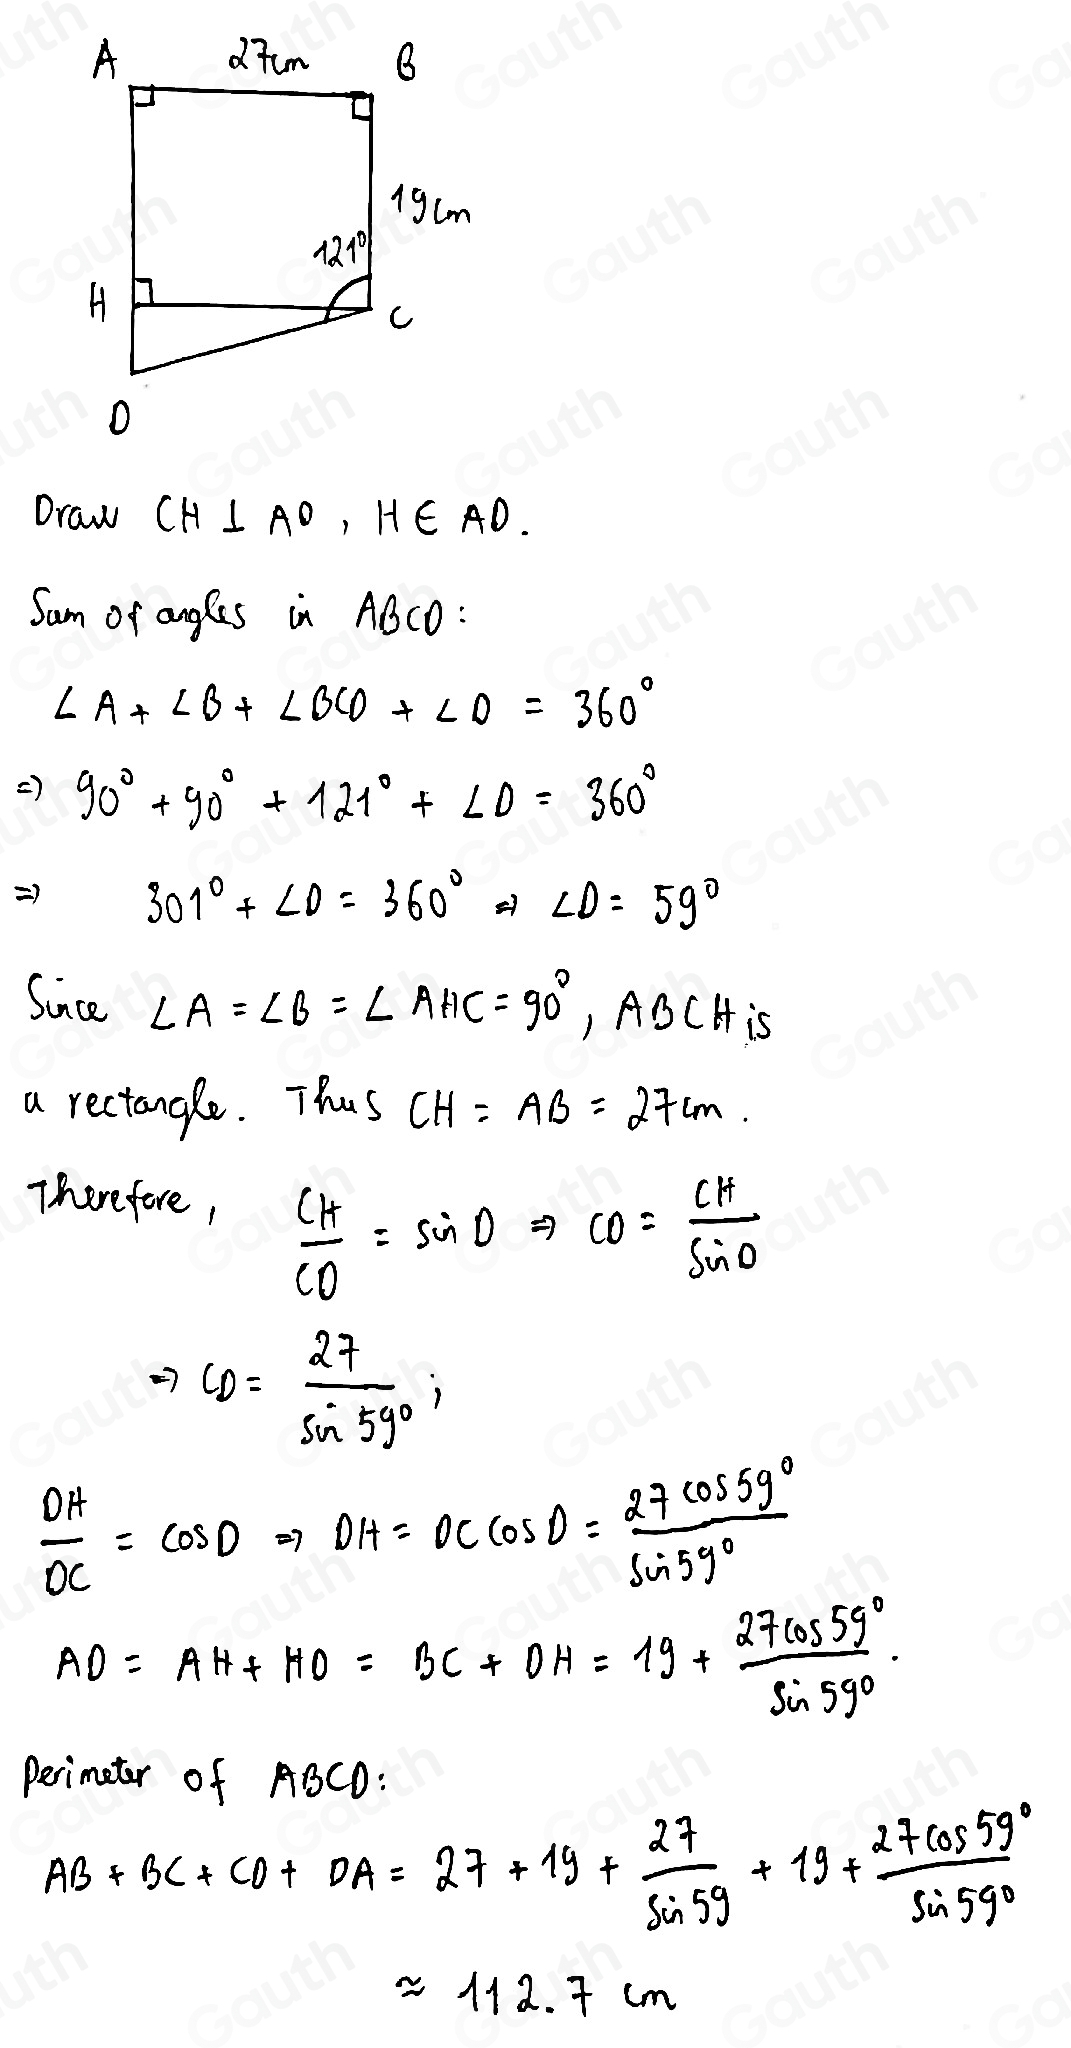 A 27cm B
19cm
121°
H C
D
Draw CH ⊥ AD, H ∈ AD.
Sum of angles in ABCD:
∠A + ∠B + ∠BCD + ∠D = 360°
=> 90° + 90° + 121° + ∠D = 360°
=> 301° + ∠D = 360° => ∠D = 59°
Since ∠A = ∠B = ∠AHC = 90°, ABCH is
a rectangle. Thus CH = AB = 27cm.
Therefore, CH/CD = sin D => CD = CH/sin D
=> CD = 27/sin 59°;
DH/DC = cos D => DH = DC cos D = 27 cos 59°/sin 59°
AD = AH + HD = BC + DH = 19 + 27 cos 59°/sin 59°.
Perimeter of ABCD:
AB + BC + CD + DA = 27 + 19 + 27/sin 59 + 19 + 27 cos 59°/sin 59°
≈ 112.7 cm